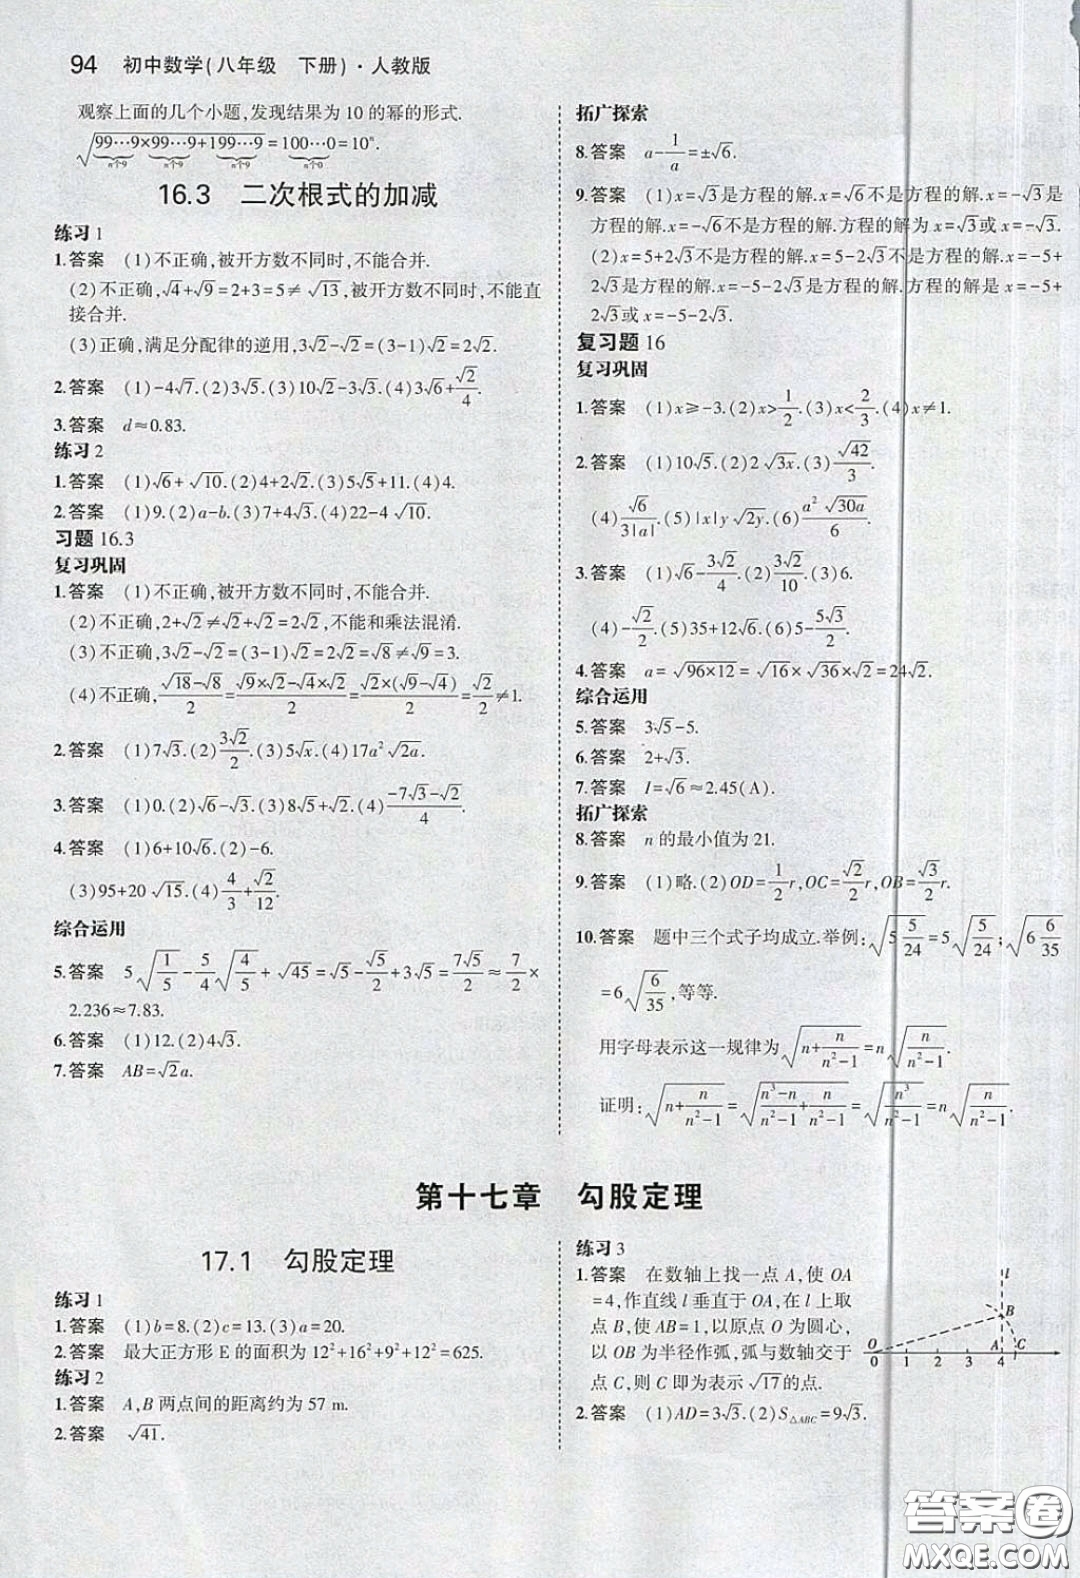 94 初中数学(八年级 下册)·人教版
观察上面的几个小题,发现结果为 10 的幂的形式.
√(99…9×99…9+199…9)=100…0=10ⁿ.
n个9 n个9 n个9 n个0
16.3 二次根式的加减
练习 1
1.答案 (1)不正确,被开方数不同时,不能合并.
(2)不正确,√4+√9=2+3=5≠√13,被开方数不同时,不能直
接合并.
(3)正确,满足分配律的逆用,3√2-√2=(3-1)√2=2√2.
2.答案 (1)-4√7.(2)3√5.(3)10√2-3√3.(4)3√6+√2/4.
3.答案 d≈0.83.
练习 2
1.答案 (1)√6+√10.(2)4+2√2.(3)5√5+11.(4)4.
2.答案 (1)9.(2)a-b.(3)7+4√3.(4)22-4√10.
习题 16.3
复习巩固
1.答案 (1)不正确,被开方数不同时,不能合并.
(2)不正确,2+√2≠√2+√2=2√2,不能和乘法混淆.
(3)不正确,3√2-√2=(3-1)√2=2√2=√8≠√9=3.
(4)不正确,(√18-√8)/2=(√(9×2)-√(4×2))/2=(√2×(√9-√4))/2=√2/2≠1.
2.答案 (1)7√3.(2)3√2/2.(3)5√x.(4)17a²√2a.
3.答案 (1)0.(2)√6-√3.(3)8√5+√2.(4)(-7√3-√2)/4.
4.答案 (1)6+10√6.(2)-6.
(3)95+20√15.(4)4/3+√2/12.
综合运用
5.答案 5√(1/5)-5/4√(4/5)+√45=√5-√5/2+3√5=7√5/2≈7/2×
2.236≈7.83.
6.答案 (1)12.(2)4√3.
7.答案 AB=√2a.
拓广探索
8.答案 a-1/a=±√6.
9.答案 (1)x=√3是方程的解.x=√6不是方程的解.x=-√3是
方程的解.x=-√6不是方程的解.方程的解为x=√3或x=-√3.
(2)x=5+2√3不是方程的解.x=5-2√3不是方程的解.x=-5+
2√3是方程的解.x=-5-2√3是方程的解.方程的解是x=-5+
2√3或x=-5-2√3.
复习题 16
复习巩固
1.答案 (1)x≥-3.(2)x>1/2.(3)x<2/3.(4)x≠1.
2.答案 (1)10√5.(2)2√3x.(3)√42/3.
(4)√6/3|a|.(5)|x|y√2y.(6)a²√30a/6.
3.答案 (1)√6-3√2/4.(2)3√2/10.(3)6.
(4)-√2/2.(5)35+12√6.(6)5-5√3/2.
4.答案 a=√(96×12)=√16×√36×√2=24√2.
综合运用
5.答案 3√5-5.
6.答案 2+√3.
7.答案 I=√6≈2.45(A).
拓广探索
8.答案 n的最小值为 21.
9.答案 (1)略.(2)OD=1/2r,OC=√2/2r,OB=√3/2r.
10.答案 题中三个式子均成立.举例:√(5 5/24)=5√(5/24);√(6 6/35)
=6√(6/35),等等.
用字母表示这一规律为√(n+n/(n²-1))=n√(n/(n²-1)).
证明:√(n+n/(n²-1))=√((n³-n)/(n²-1)+n/(n²-1))=√(n³/(n²-1))=n√(n/(n²-1)).
第十七章 勾股定理
17.1 勾股定理
练习 1
1.答案 (1)b=8.(2)c=13.(3)a=20.
2.答案 最大正方形 E 的面积为 12²+16²+9²+12²=625.
练习 2
1.答案 A,B 两点间的距离约为 57 m.
2.答案 √41.
练习 3
1.答案 在数轴上找一点 A,使 OA
=4,作直线 l 垂直于 OA,在 l 上取
点 B,使 AB=1,以原点 O 为圆心,
以 OB 为半径作弧,弧与数轴交于
点 C,则 C 即为表示√17的点.
l
B
O A C
0 1 2 3 4
2.答案 (1)AD=3√3.(2)S△ABC=9√3.
答案圈
MXQE.COM